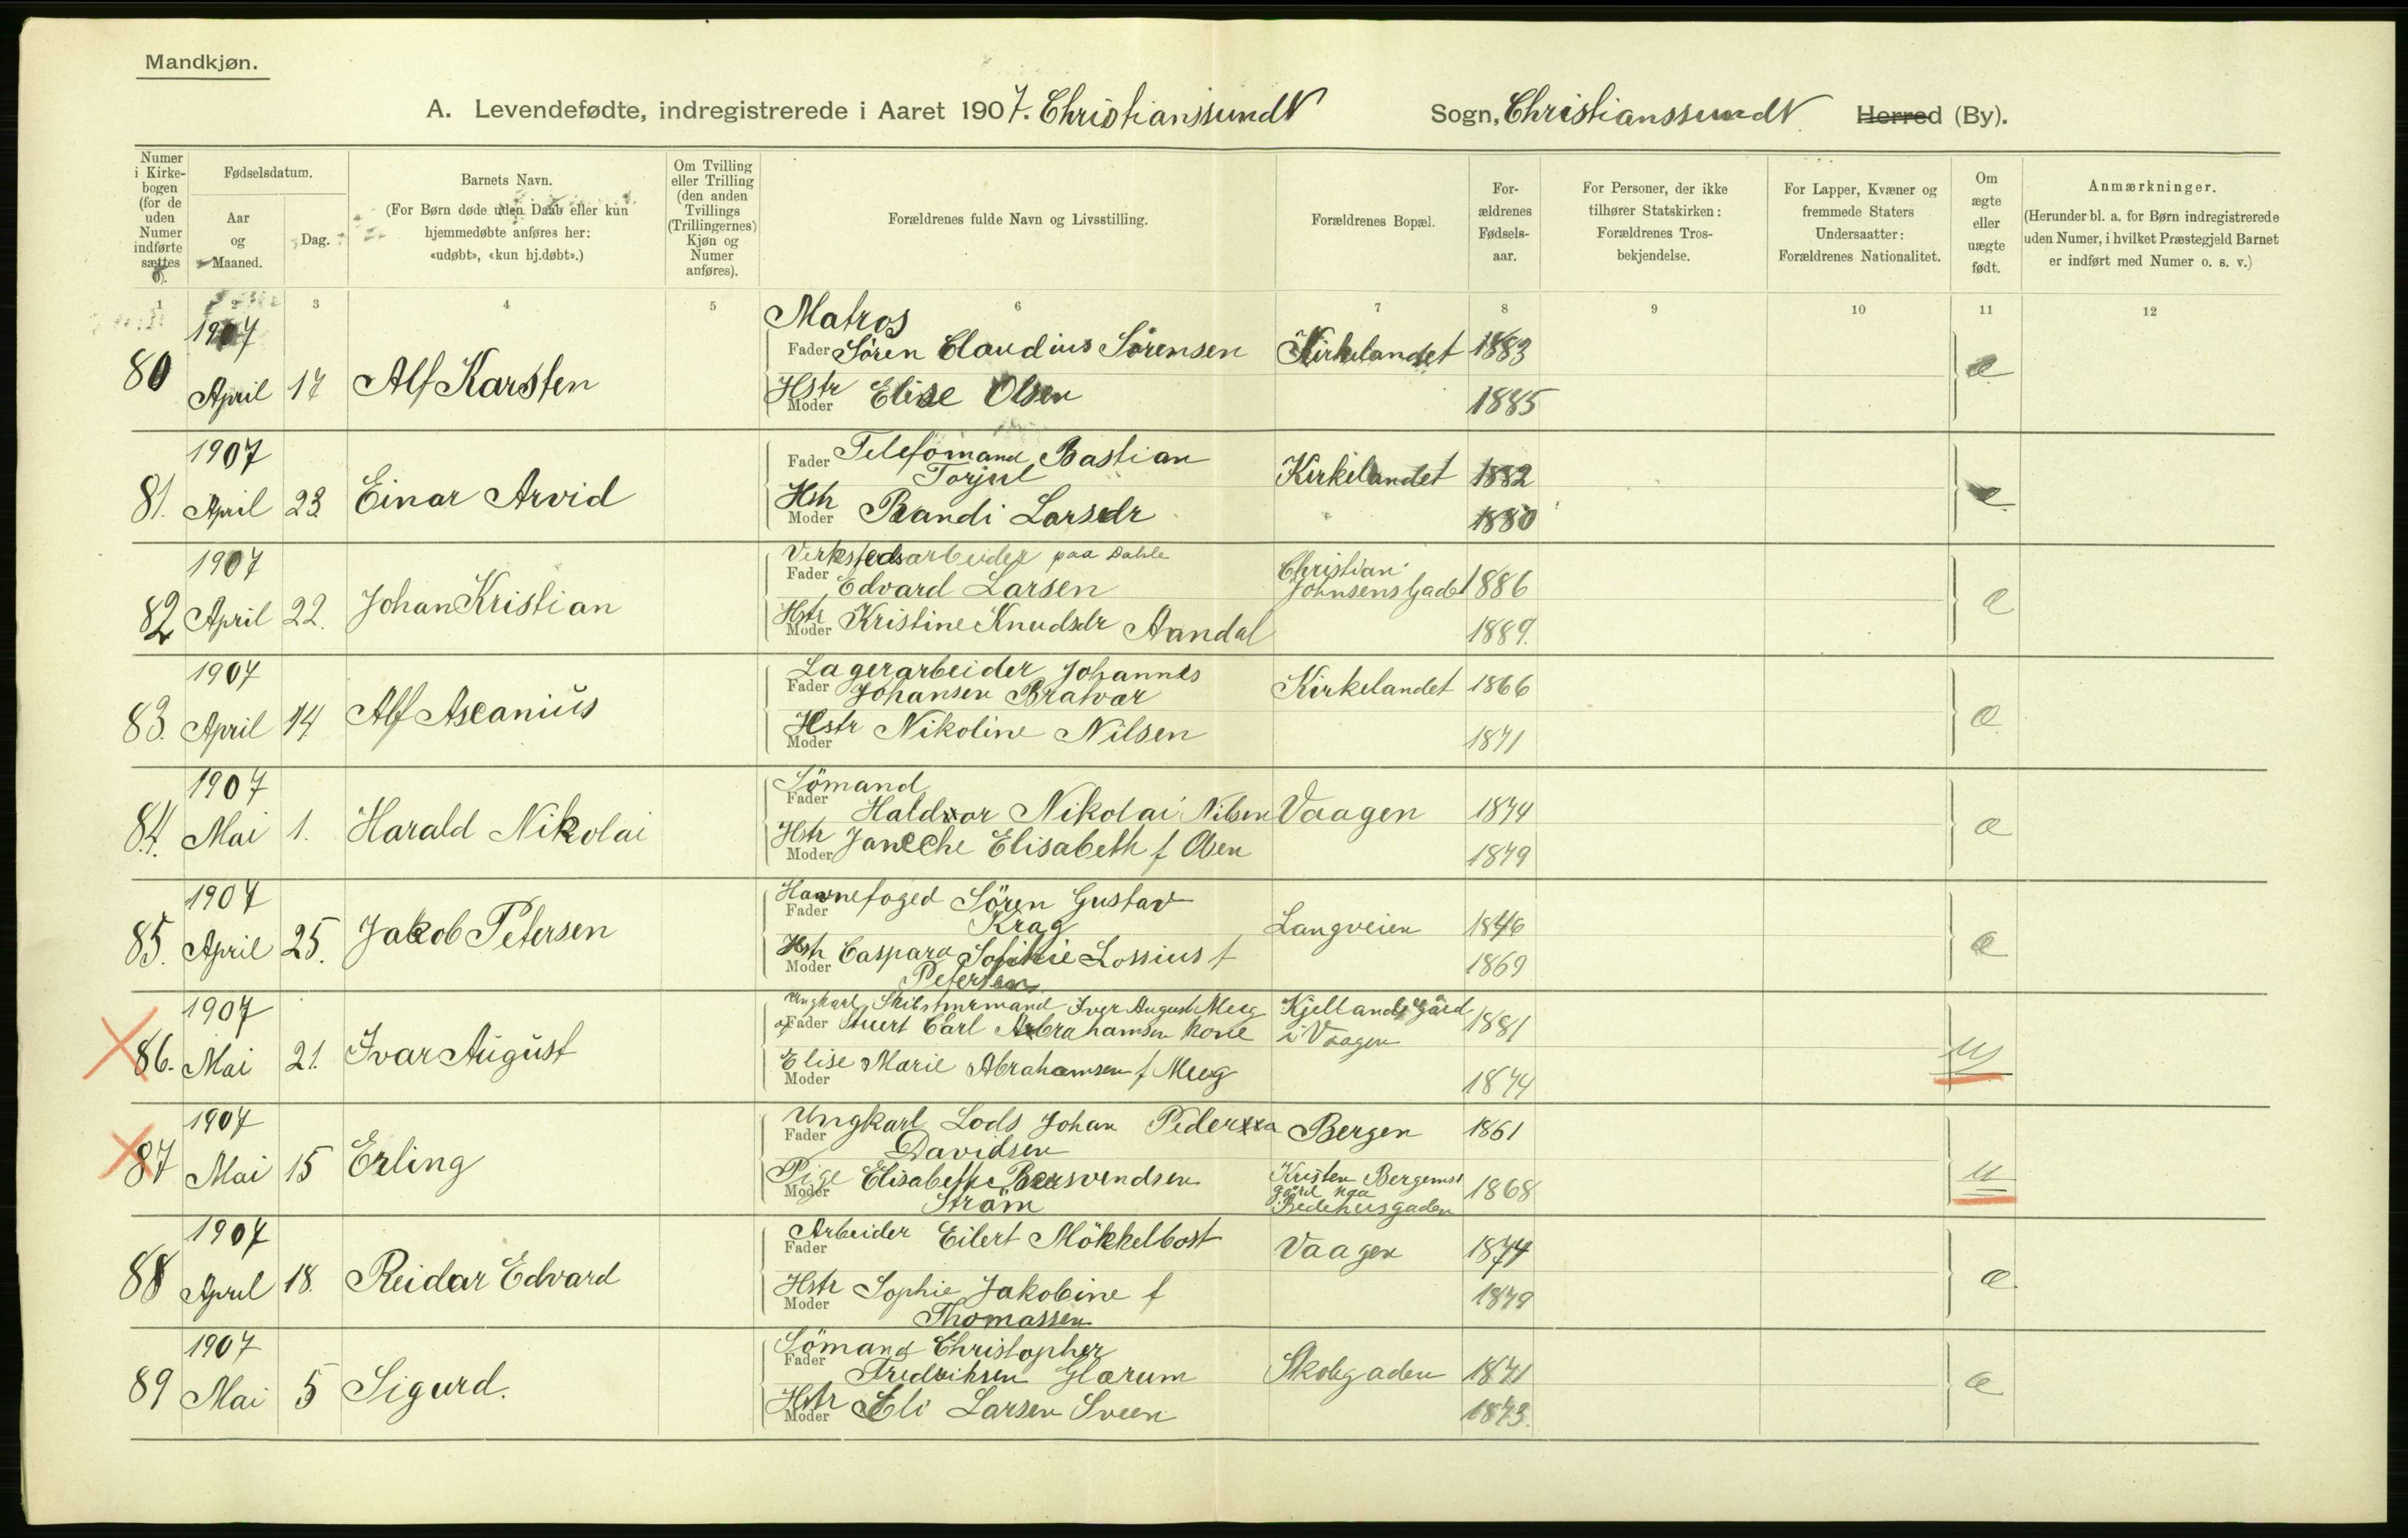 Mandkjøn.
A. Levendefødte, indregistrerede i Aaret 1907. ChristianssundN Sogn, ChristianssundN Herred (By).
Numer i Kirkebogen (for de uden Numer indførte sættes 0).
Fødselsdatum.
Aar og Maaned.
Dag.
Barnets Navn.
(For Børn døde uden Daab eller kun hjemmedøbte anføres her: «udøbt», «kun hj.døbt».)
Om Tvilling eller Trilling (den anden Tvillings (Trillingernes) Kjøn og Numer anføres).
Forældrenes fulde Navn og Livsstilling.
Forældrenes Bopæl.
Forældrenes Fødselsaar.
For Personer, der ikke tilhører Statskirken: Forældrenes Trosbekjendelse.
For Lapper, Kvæner og fremmede Staters Undersaatter: Forældrenes Nationalitet.
Om ægte eller uægte født.
Anmærkninger.
(Herunder bl. a. for Børn indregistrerede uden Numer, i hvilket Præstegjeld Barnet er indført med Numer o. s. v.)
1 2 3 4 5 6 7 8 9 10 11 12
1907 Matros
80 April 17 Alf Karsten Fader Sören Claudius Sörensen Kirkelandet 1883 æ
Hstr Moder Elise Olsen 1885
1907 Fader Telefomand Bastian
Torjul Kirkelandet 1882
81. April 23 Einar Arvid Hstr Moder Randi Larsdr 1880 æ
1907 Verkstedsarbeider paa Dahle
Fader Edvard Larsen Christian Johnsens Gade 1886
82 April 22. Johan Kristian Hstr Moder Kristine Knudsdr Aandal 1889. æ
1907 Lagerarbeider Johannes
Fader Johansen Bratvær Kirkelandet 1866
83. April 14 Alf Ascanius Hstr Moder Nikoline Nilsen 1871 æ
1907 Sömand
Fader Haldvor Nikolai Nilsen Vaagen 1874
84. Mai 1. Harald Nikolai Hstr Moder Janecke Elisabeth f Olsen 1879 æ
1907 Havnefoged Sören Gustav
Fader Krag Langveien 1846
85. April 25. Jakob Petersen Hstr Moder Caspara Sofikie Lossius f 1869 æ
Petersen
1907 Ungkarl, Skibstyrmand Iver August Meeg Kjellands Gård
og Fader Stuert Carl Abrahamsen kone i Vaagen 1881
86. Mai 21. Ivar August Elise Marie Abrahamsen f Meeg 1874 u
Moder
1907 Ungkarl Lods Johan Peder Bergen 1861
Fader Davidsen
87 Mai 15 Erling Pige Moder Elisabeth Bersvendsen Kristen Bergems 1868 u
Ström gård paa Bedehusgaden
1907 Arbeider Eilert Mökkelbost Vaagen 1874
Fader
88 April 18. Reidar Edvard Hstr Moder Sophie Jakobine f 1879 æ
Thomassen
1907 Sömand Christopher
Fader Fredriksen Glærum Skolegaden 1871
89 Mai 5 Sigurd. Hstr Moder Eli Larsen Sveen 1873. æ